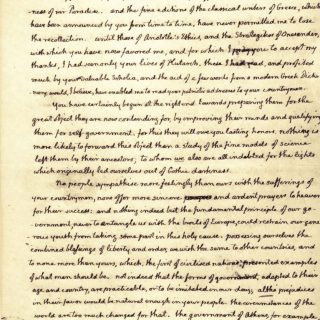 ness of our Paradise. and the fine editions of the classical writers of Greece, which
have been announced by you from time to time, have never permitted me to lose
the recollection. until those of Aristotle's Ethics, and the Strategicos of Onesander,
with which you have now favored me, and for which I pray you to accept my
thanks, I had seen only your lives of Plutarch. these I had read, and profited
much by your valuable Scholia, and the aid of a few words from a modern Greek Dicti-
onary would, I believe, have enabled me to read your patriotic addresses to your countrymen.
You have certainly begun at the right end towards preparing them for the
great object they are now contending for, by improving their minds and qualifying
them for self-government. for this they will owe you lasting honors. nothing is
more likely to forward this object than a study of the fine models of science
left them by their ancestors; to whom we also are all indebted for the lights
which originally led ourselves out of Gothic darkness.
No people sympathise more feelingly than ours with the sufferings of
your countrymen, none offer more sincere and ardent prayers to heaven
for their success: and nothing indeed but the fundamental principle of our go-
vernment, never to entangle us with the broils of Europe, could restrain our gene-
rous youth from taking some part in this holy cause. possessing ourselves the
combined blessings of liberty and order, we wish the same to other countries, and
to none more than yours, which, the first of civilised nations, presented examples
of what man should be. not indeed that the forms of government, adapted to their
age and country, are practicable, or to be imitated in our day; altho prejudices
in their favor would be natural enough in your people. the circumstances of the
world are too much changed for that. the government of Athens, for example